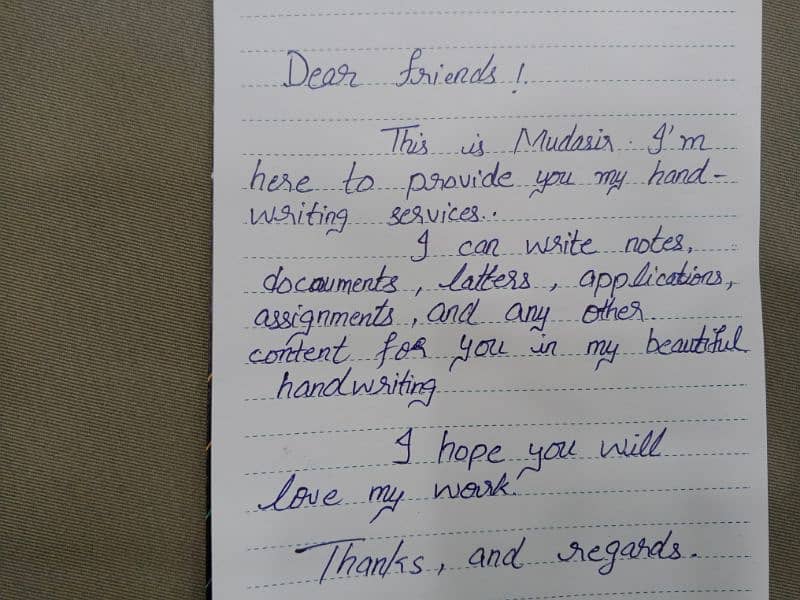 Dear friends!
This is Mudasir. I'm
here to provide you my hand-
writing services..
I can write notes,
documents, latters, applications,
assignments, and any other
content for you in my beautiful
handwriting
I hope you will
love my work.
Thanks, and regards.